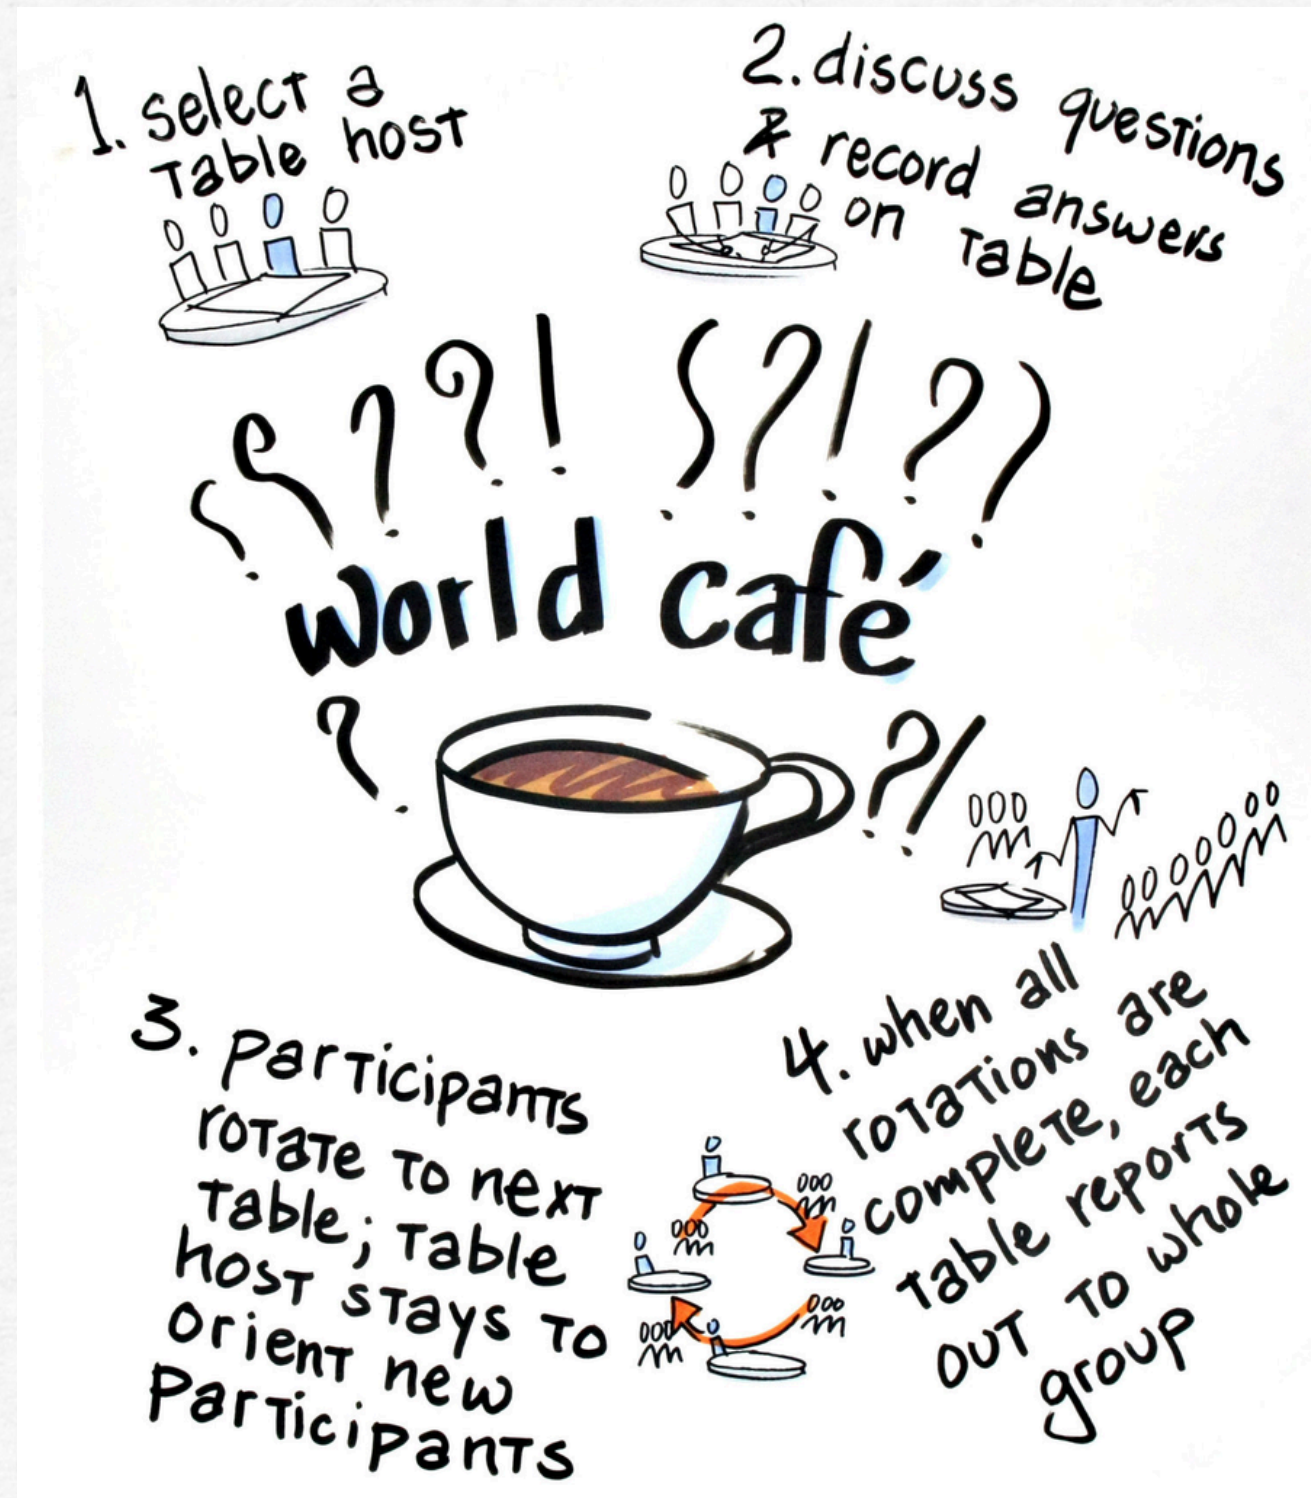 1. select a
table host
2. discuss questions
& record answers
on table
world café
3. participants
rotate to next
table; table
host stays to
orient new
participants
4. when all
rotations are
complete, each
table reports
out to whole
group